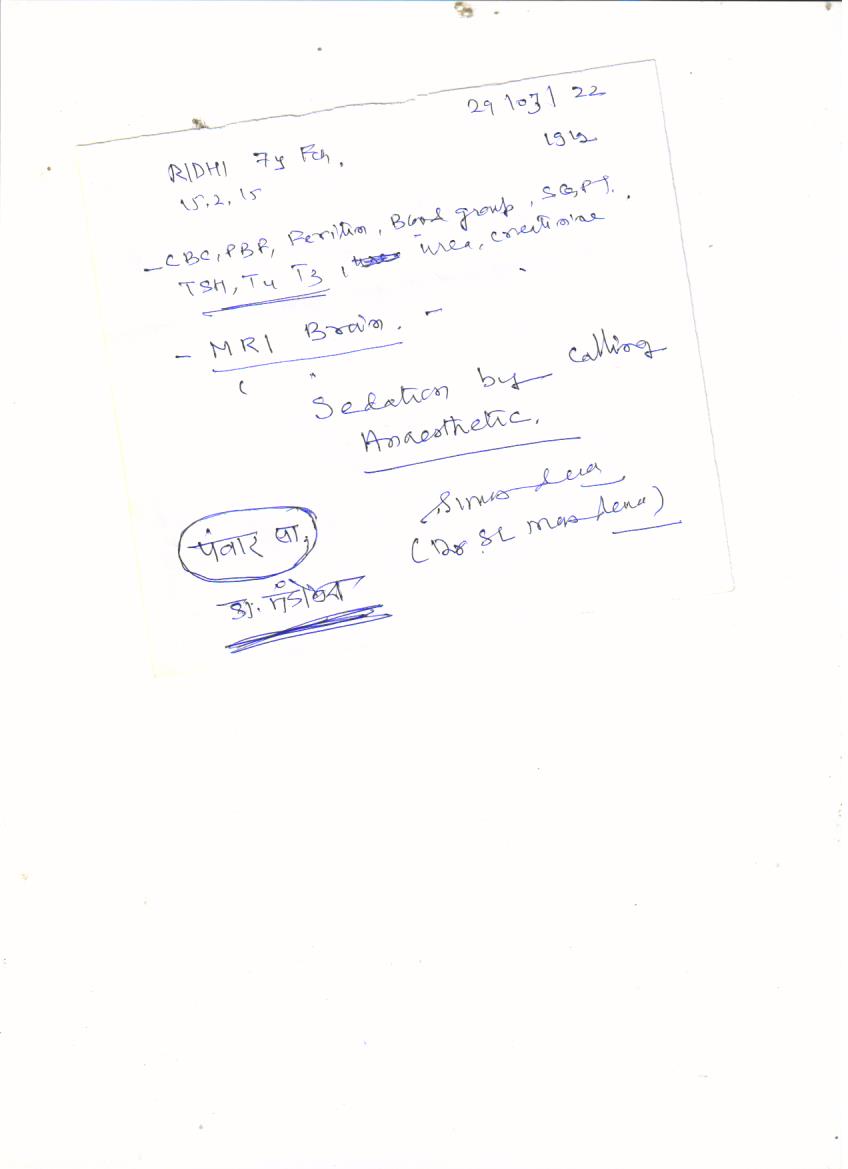 29/03/22
1912
RIDHI 7y Fch.
15.2.15
- CBC, PBF, Ferittin, Blood group, SGPT.
TSH, T4 T3, urea, creatinine
- MRI Brain. -
Sedation by calling
Anaesthetic.
(Dr SL
पंवार सा,
डा. मंडोवरा